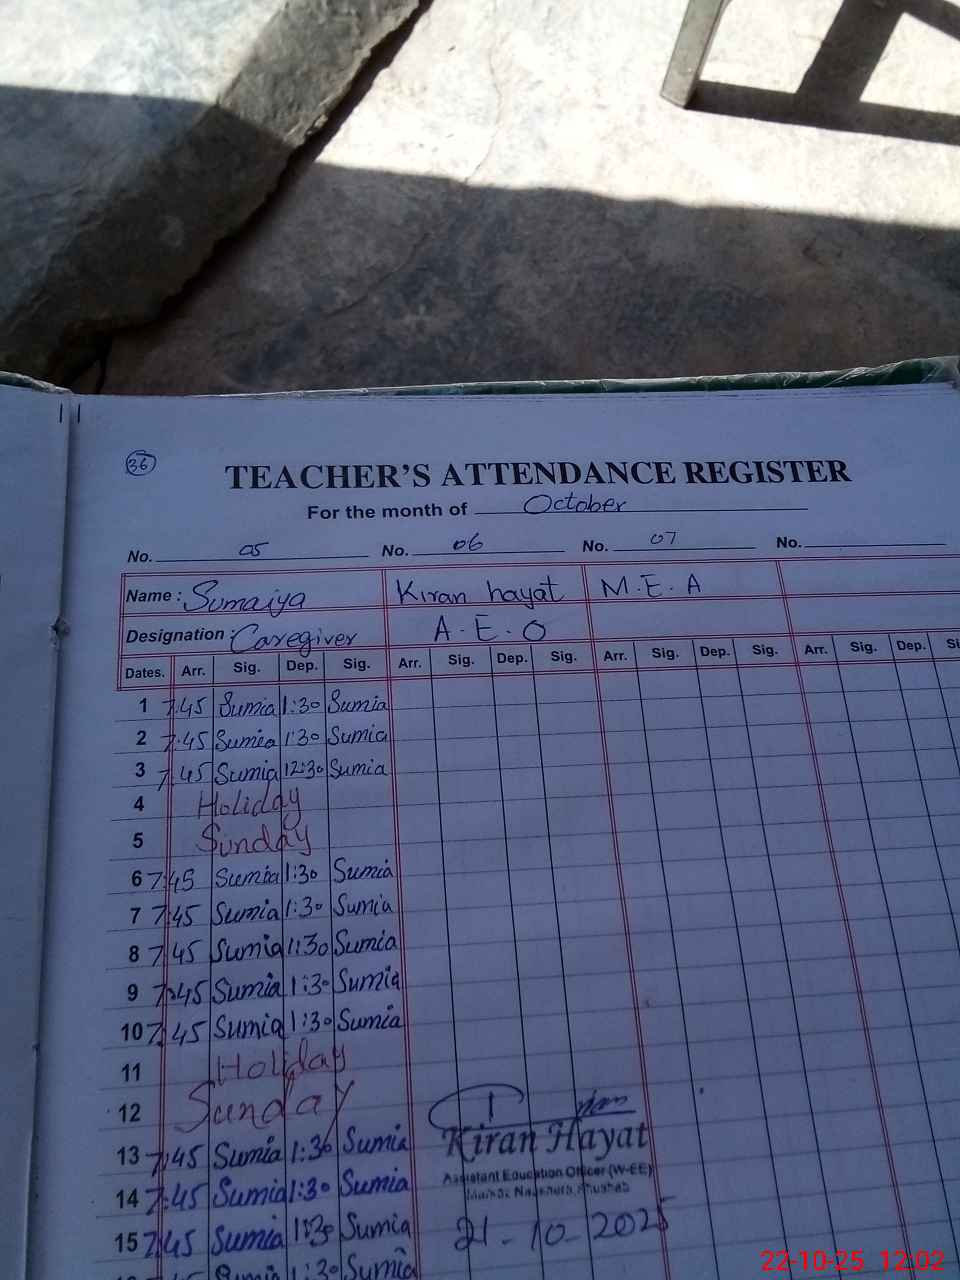 36
TEACHER'S ATTENDANCE REGISTER
For the month of October
No. 05 No. 06 No. 07 No.
Name : Sumaiya Kiran hayat M.E.A
Designation : Caregiver A.E.O
Dates. Arr. Sig. Dep. Sig. Arr. Sig. Dep. Sig. Arr. Sig. Dep. Sig. Arr. Sig. Dep.
1 7:45 Sumia 1:30 Sumia
2 7:45 Sumia 1:30 Sumia
3 7:45 Sumia 12:30 Sumia
4 Holiday
5 Sunday
6 7:45 Sumia 1:30 Sumia
7 7:45 Sumia 1:30 Sumia
8 7:45 Sumia 1:30 Sumia
9 7:45 Sumia 1:30 Sumia
10 7:45 Sumia 1:30 Sumia
11 Holiday
12 Sunday
13 7:45 Sumia 1:30 Sumia
Kiran Hayat
Assistant Education Officer (W-EE)
14 7:45 Sumia 1:30 Sumia
15 7:45 Sumia 1:30 Sumia
21-10-2025
1:30 Sumia
22-10-25 12:02